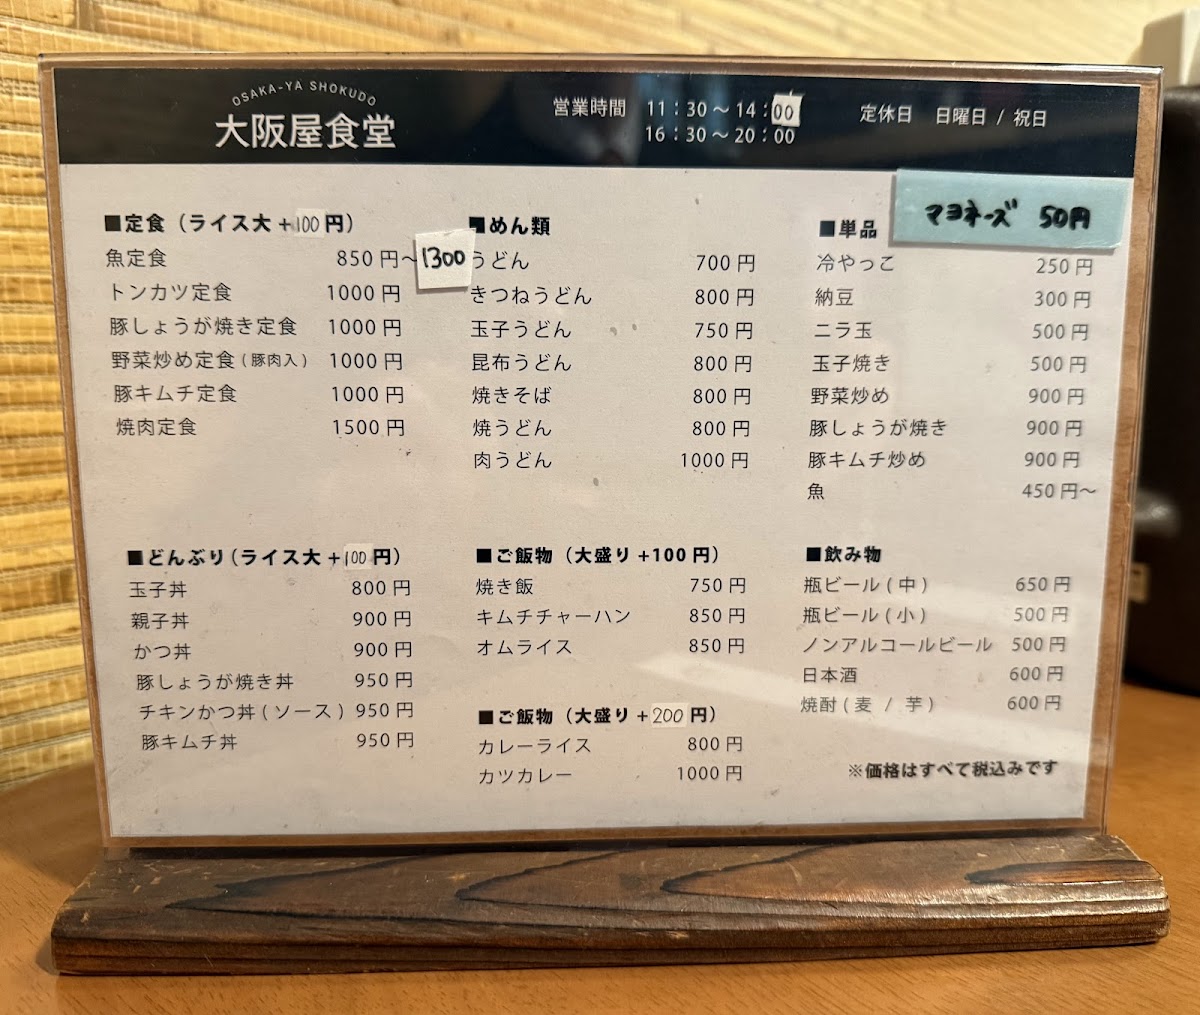 OSAKA-YA SHOKUDO
大阪屋食堂
営業時間 11：30～14：00
16：30～20：00
定休日 日曜日 / 祝日
マヨネーズ 50円
■定食（ライス大+100円）
魚定食 850円～1300
トンカツ定食 1000円
豚しょうが焼き定食 1000円
野菜炒め定食(豚肉入) 1000円
豚キムチ定食 1000円
焼肉定食 1500円
■めん類
うどん 700円
きつねうどん 800円
玉子うどん 750円
昆布うどん 800円
焼きそば 800円
焼うどん 800円
肉うどん 1000円
■単品
冷やっこ 250円
納豆 300円
ニラ玉 500円
玉子焼き 500円
野菜炒め 900円
豚しょうが焼き 900円
豚キムチ炒め 900円
魚 450円～
■どんぶり（ライス大+100円）
玉子丼 800円
親子丼 900円
かつ丼 900円
豚しょうが焼き丼 950円
チキンかつ丼(ソース) 950円
豚キムチ丼 950円
■ご飯物（大盛り+100円）
焼き飯 750円
キムチチャーハン 850円
オムライス 850円
■ご飯物（大盛り+200円）
カレーライス 800円
カツカレー 1000円
■飲み物
瓶ビール(中) 650円
瓶ビール(小) 500円
ノンアルコールビール 500円
日本酒 600円
焼酎(麦 / 芋) 600円
※価格はすべて税込みです